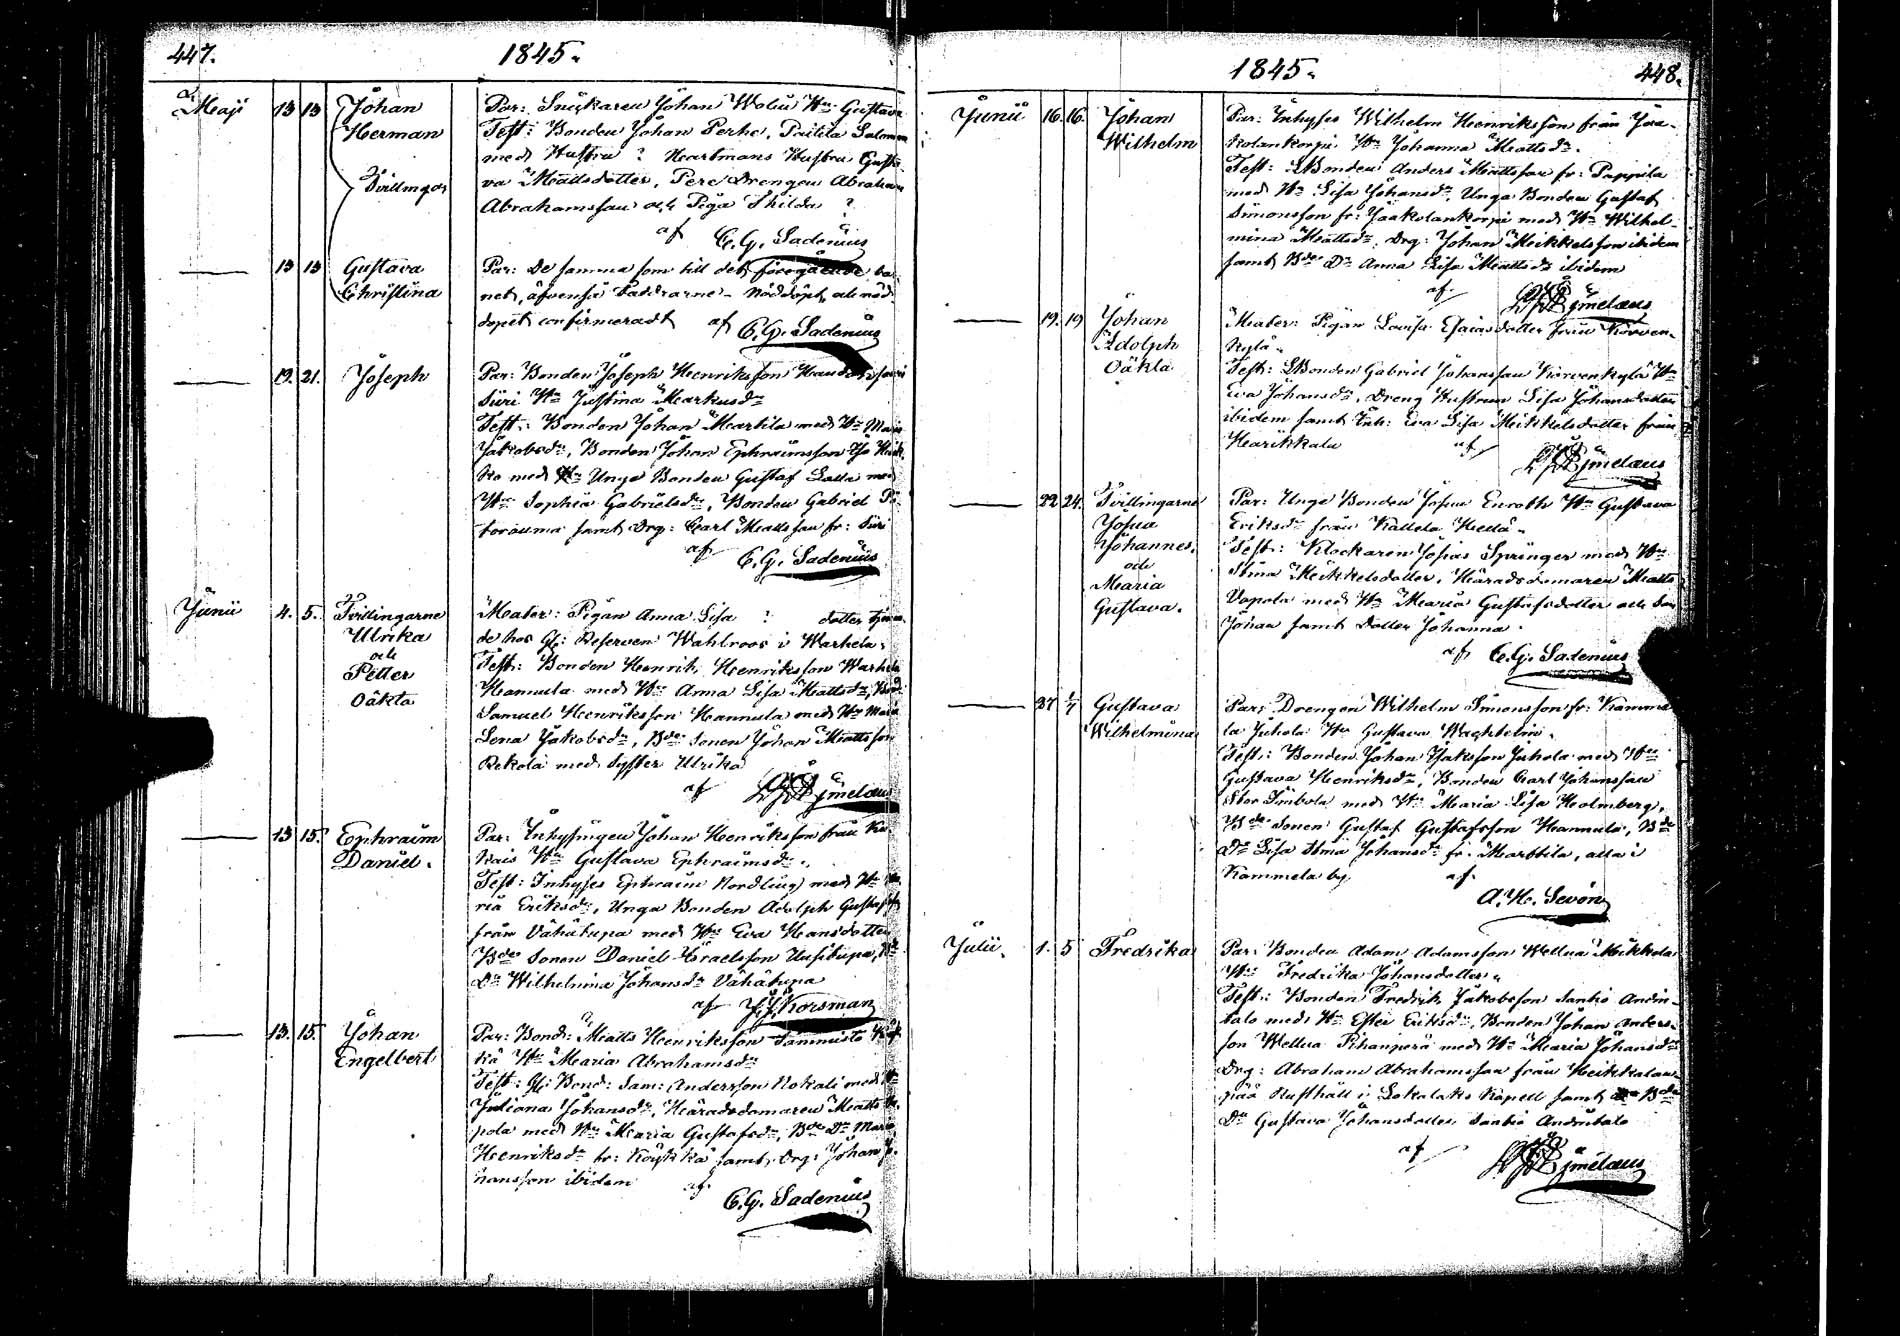 447.
1845.
Maji 13 13 Johan Herman
Tvillingar
Par: Snickaren Johan Walin Hu Gustava
Test: Bonden Johan Perho, Salomon
med Hustru ? Hartmans Hustru Gusta
va Mattsdotter, Drengen Abraham
Abrahamsson och Piga Thilda ?
af C. G. Sadenius
13 13 Gustava Christina
Par: De samma som till det föregående bar
net, äfvenså faddrarne - Nöddöpt, och nöd
dopet confirmeradt af C. G. Sadenius
19. 21. Joseph
Par: Bonden Joseph Henriksson
Siiri Hu Justina Markusdr
Test: Bonden Johan Marttila med Hu Maja
Jakobsdr, Bonden Johan Ephraimsson
ko med Hu Unga Bonden Gustaf Lalla med
Hu Sophia Gabrielsdr, Bonden Gabriel
samt Drg: Carl Mattsson fr: Siiri
af C. G. Sadenius
Junii 4. 5. Tvillingarne
Ulrika
och
Petter
Oäkta
Mater: Pigan Anna Lisa ? dotter tjenan
de hos Gl: Reserven Wahlroos i Warhela.
Test: Bonden Henrik Henriksson Warhela
Hannula med Hu Anna Lisa Mattsdr, Bond
Samuel Henriksson Hannula med Hu Maria
Lena Jakobsdr, Bde Sonen Johan Mattsson
Rekola med Syster Ulrika
af
13 15. Ephraim
Daniel.
Par: Inhysingen Johan Henriksson från
Hu Gustava Ephraimsdr.
Test: Inhyses Ephraim Nordling med Hu Ma
ria Eriksdr, Unga Bonden Adolph Gustafsson
från Vähätupa med Hu Eva Hansdotter
Bde Sonen Daniel Israelsson Uusitupa, Bde
Dr Wilhelmina Johansdr Vähätupa
af J. J. Korsman
13. 15. Johan
Engelbert
Par: Bond: Matts Henriksson Tammisto
kä Hu Maria Abrahamsdr
Test: Gl: Bond: Sam: Andersson Kokali med Hu
Juliana Johansdr, Häradsdomaren Matts Va
pola med Hu Maria Gustafsdr, Bde Dr Maria
Henriksdr fr: Köykkä samt Drg: Johan Jo
hansson ibidem af
C. G. Sadenius
1845.
448.
Junii 16. 16. Johan
Wilhelm
Par: Inhyses Wilhelm Henriksson från Jaa-
kolankorpi Hu Johanna Mattsdr.
Test: Bonden Anders Mattsson fr: Pappila
med Hu Lisa Johansdr, Unga Bonden Gustaf
Simonsson fr: Jaakolankorpi med Hu Wilhel-
mina Mattsdr, Drg: Johan Mikkelsson ibidem
samt Bde Dr Anna Lisa Mattsdr ibidem
af
19. 19 Johan
Adolph
Oäkta
Mater: Pigan Lovisa Esaiasdotter från Korven-
kylä.
Test: Bonden Gabriel Johansson Korvenkylä Hu
Eva Johansdr, Dreng Hustrun Lisa Johansdotter
ibidem samt Inh: Eva Lisa Mikkelsdotter från
Harikkala af
22 24. Tvillingarne
Josua
Johannes.
och
Maria
Gustava.
Par: Unge Bonden Josua Enroth Hu Gustava
Eriksdr från Kallela Kellä.
Test: Klockaren Josias Springer med Hu
Stina Mikkelsdotter, Häradsdomaren Matts
Vapola med Hu Maria Gustafsdotter och Son
Johan samt Dotter Johanna.
af C. G. Sadenius
27 1/7 Gustava
Wilhelmina
Par: Drengen Wilhelm Simonsson fr: Kamme
la Juhola Hu Gustava Waghelm.
Test: Bonden Johan Isaksson Juhola med Hu
Gustava Henriksdr, Bonden Carl Johansson
Stor Simbola med Hu Maria Lisa Holmberg,
Bde Sonen Gustaf Gustafsson Hannula, Bde
Dr Lisa Stina Johansdr fr. Marttila, alla i
Kammela by af
A. H. Sevón
Julii. 1. 5 Fredrika
Par: Bonden Adam Adamsson Wellua Mikkola
Hu Fredrika Johansdotter.
Test: Bonden Fredrik Jakobsson Santio Andin-
talo med Hu Ester Eriksdr, Bonden Johan Anders-
son Wellua Pihanperä med Hu Maria Johansdr
Drg: Abraham Abrahamsson från Heikkolan-
pää Rusthåll i Lokalaks Kapell samt Bde
Dr Gustava Johansdotter Santio Andintalo
af